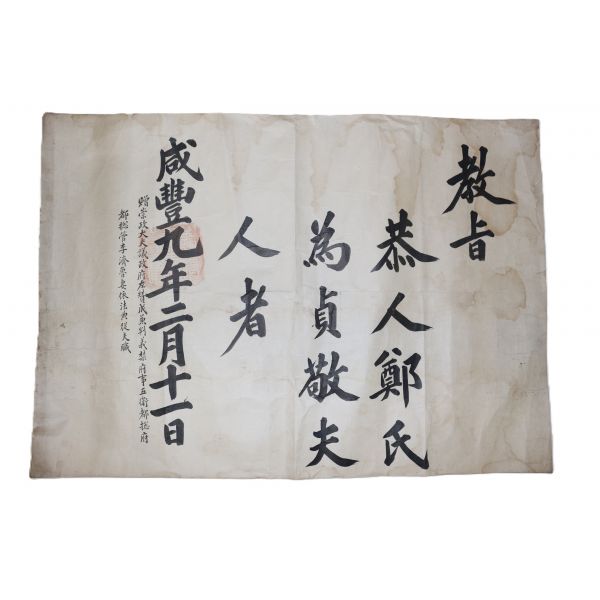 教旨
恭人鄭氏
為貞敬夫
人者
咸豐九年二月十一日
贈崇政大夫議政府左贊成兼判義禁府事五衛都摠府
都摠管李濟魯妻依法典從夫職